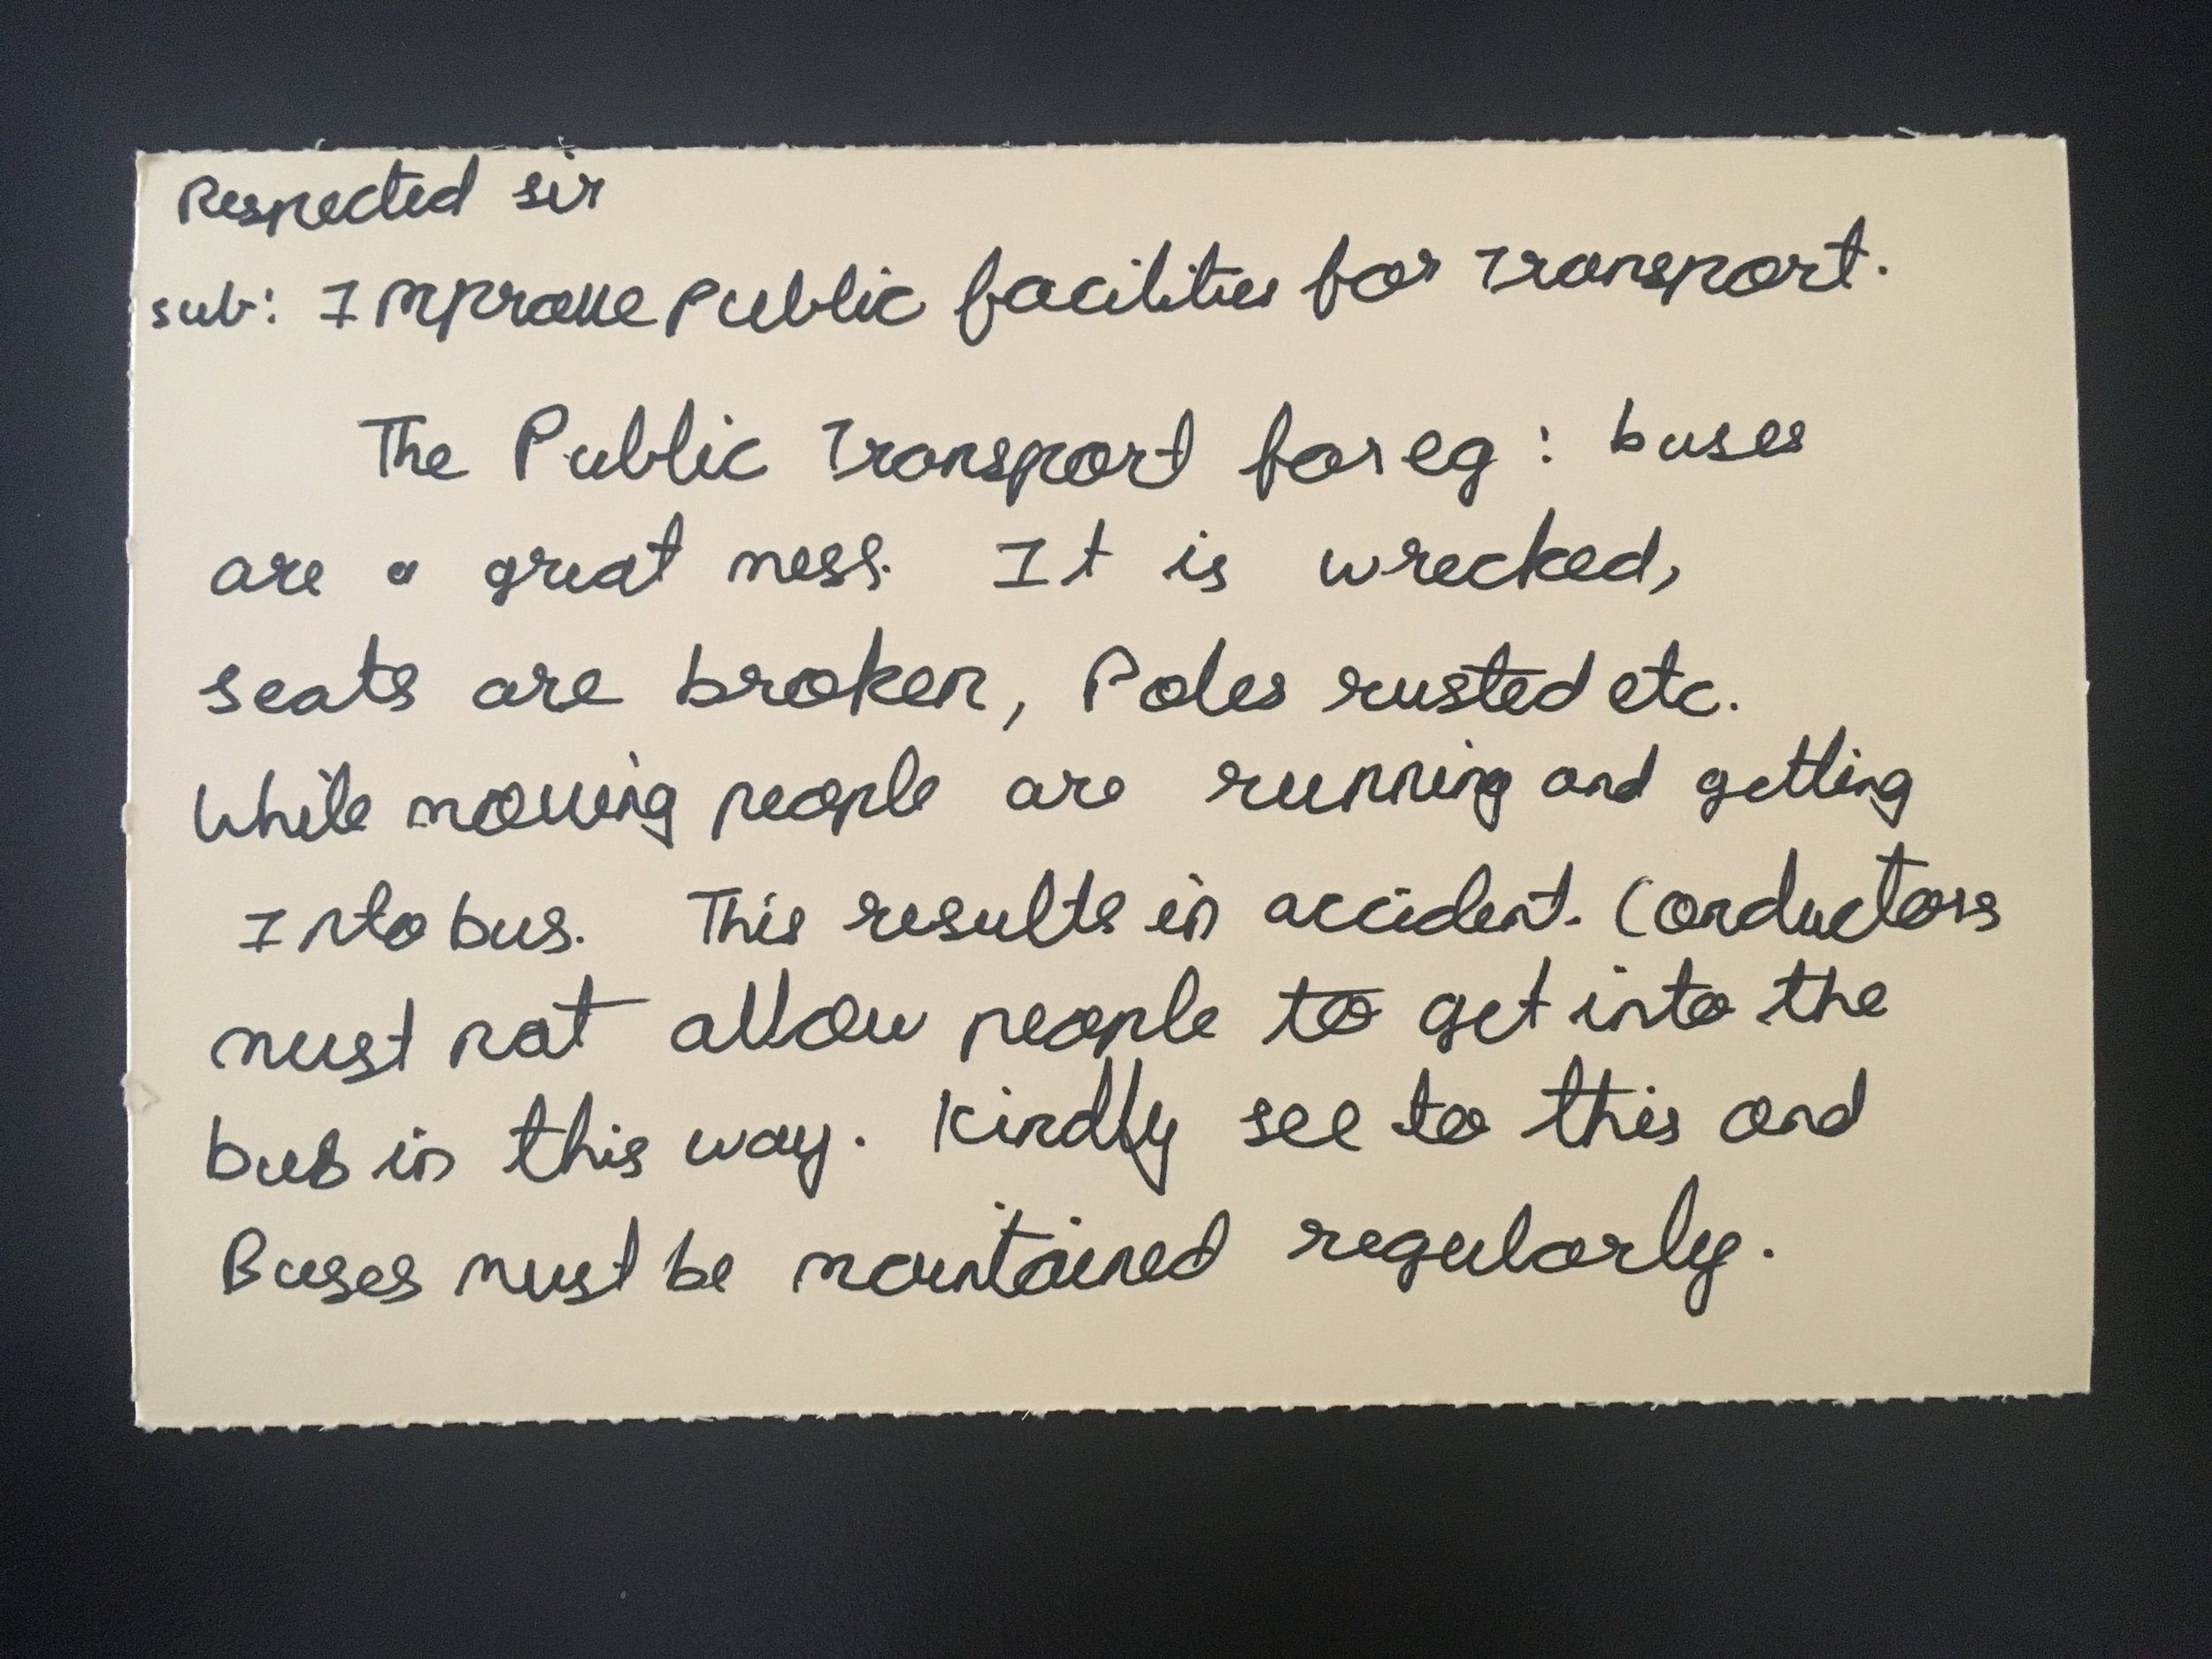 Respected sir
sub: Improve Public facilities for Transport.
The Public Transport for eg: buses
are a great mess. It is wrecked,
seats are broken, Poles rusted etc.
While moving people are running and getting
Into bus. This results in accident. Conductors
must not allow people to get into the
bus in this way. Kindly see to this and
Buses must be maintained regularly.